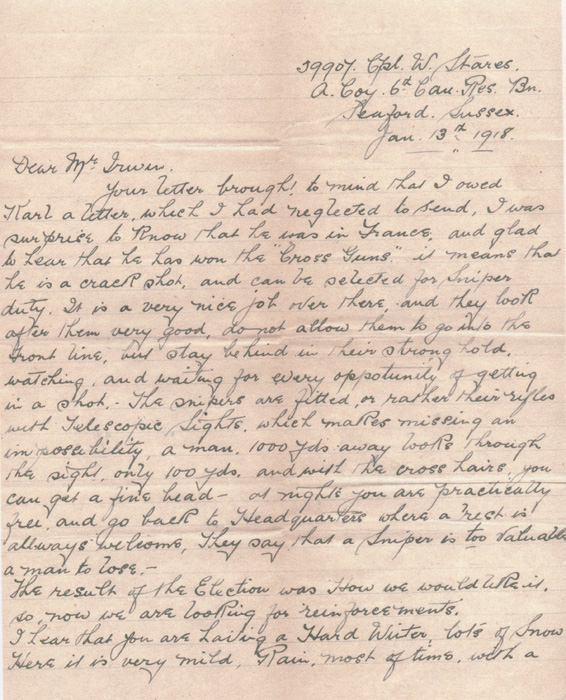 39907. Cpl. W. Stares.
A. Coy. 6th Can. Res. Bn.
Seaford. Sussex.
Jan. 13th 1918.
Dear Mr Irwin.
Your letter brought to mind that I owed
Karl a letter, which I had neglected to send, I was
surprise to know that he was in France, and glad
to hear that he has won the "Cross Guns." it means that
he is a crack shot, and can be selected for Sniper
duty. It is a very nice job over there, and they look
after them very good, do not allow them to go into the
Front line, but stay behind in their strong hold,
watching, and waiting for every oppotunity of getting
in a shot. - The snipers are fitted, or rather their rifles
with Telescopic Sights, which makes missing an
impossibility, a man, 1000 yds away looks through
the sight, only 100 yds, and with the cross hairs, you
can get a fine bead - at nights you are practically
free, and go back to Headquarters where a rest is
allways welcome, They say that a Sniper is too Valuable
a man to lose. -
The result of the Election was How we would like it,
so, now we are looking for reinforcements.
I hear that you are having a Hard Winter, lots of Snow
Here it is very mild, Rain, most of time, with a